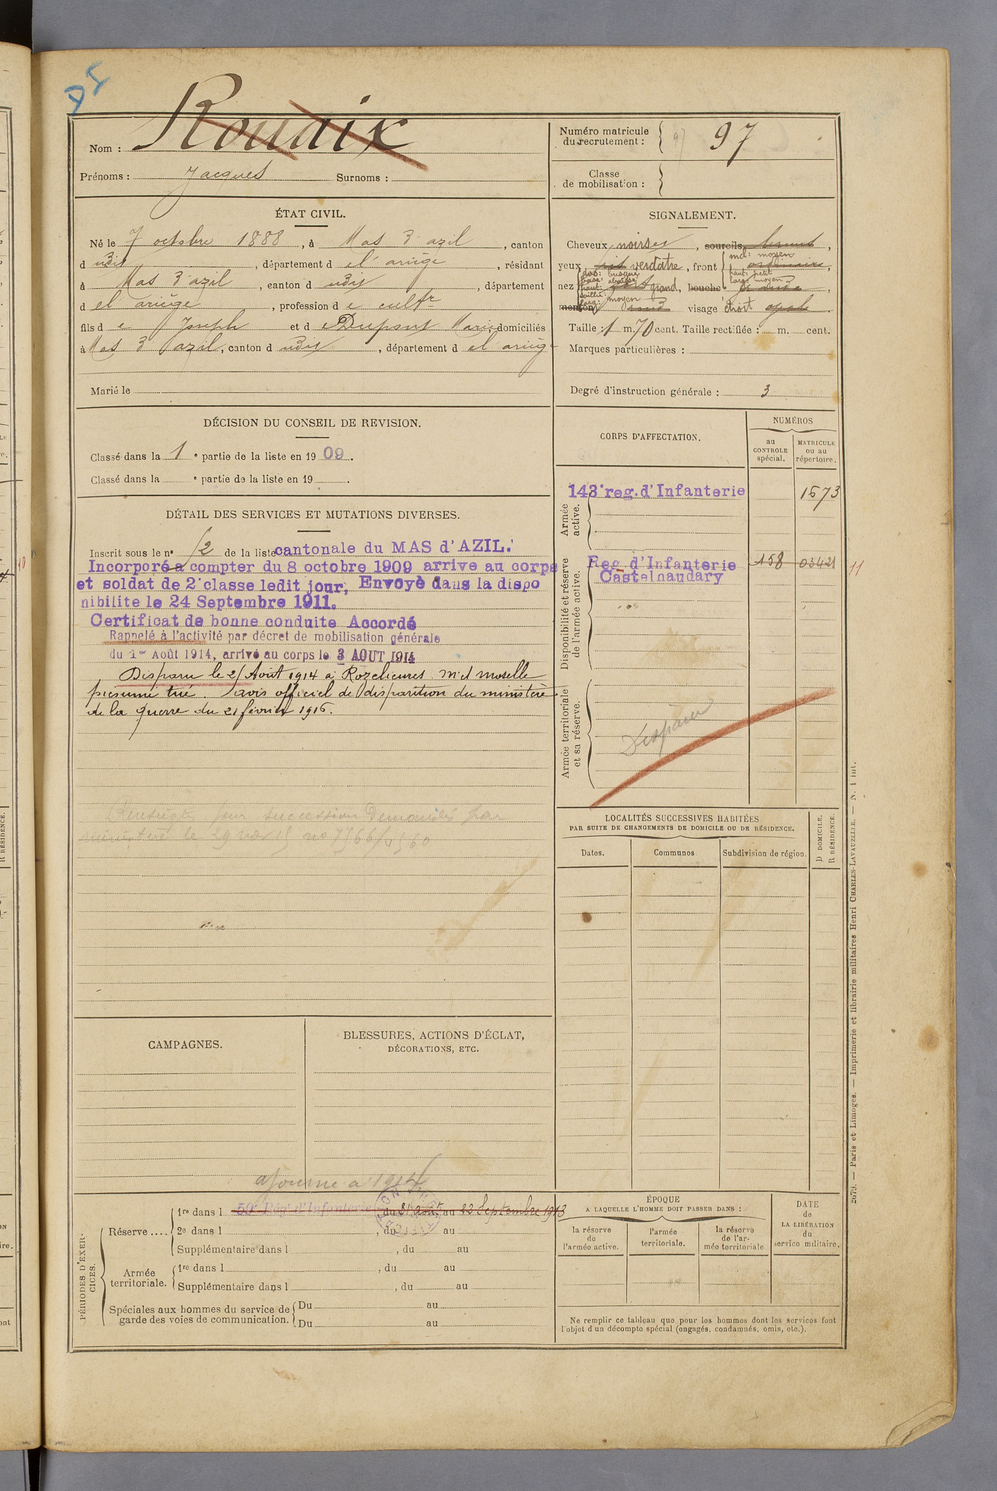 Nom : Roudix
Prénoms : Jacques Surnoms :
Numéro matricule
du recrutement : 97
Classe
de mobilisation :
ÉTAT CIVIL.
Né le 7 octobre 1888, à Mas d'azil, canton
d udit, département d el'ariège, résidant
à Mas d'azil, canton d udit, département
d el ariège, profession d e cultr
fils d e Joseph et d e Dupont Marie domiciliés
à Mas d'azil, canton d udit, département d el arièg
Marié le
SIGNALEMENT.
Cheveux noirs, sourcils bruns,
yeux verdatre, front ordinaire,
nez grand, bouche
menton rond visage ovale
Taille 1 m. 70 cent. Taille rectifiée : m. cent.
Marques particulières :
Degré d'instruction générale : 3
DÉCISION DU CONSEIL DE REVISION.
Classé dans la 1e partie de la liste en 1909.
Classé dans la e partie de la liste en 19 .
DÉTAIL DES SERVICES ET MUTATIONS DIVERSES.
Inscrit sous le n° 12 de la liste cantonale du MAS d'AZIL.
Incorporé a compter du 8 octobre 1909 arrive au corps
et soldat de 2e classe ledit jour, Envoyé dans la dispo
nibilite le 24 Septembre 1911.
Certificat de bonne conduite Accordé
Rappelé à l'activité par décret de mobilisation générale
du 1er Août 1914, arrivé au corps le 3 AOUT 1914
Disparu le 21 Août 1914 à Rozelieures. M et moselle
présumé tué. avis officiel de disparition du ministère
de la guerre du 21 février 1916.
succession Demandés par
CORPS D'AFFECTATION.
NUMÉROS
au
CONTROLE
spécial.
MATRICULE
ou au
répertoire.
Armée
active.
143e reg. d'Infanterie 1673
Disponibilité et réserve
de l'armée active.
Reg. d'Infanterie 158 03421
Castelnaudary
11
Armée territoriale
et sa réserve.
Disparu
LOCALITÉS SUCCESSIVES HABITÉES
PAR SUITE DE CHANGEMENTS DE DOMICILE OU DE RÉSIDENCE.
Dates. Communes Subdivision de région.
D DOMICILE.
R RÉSIDENCE.
CAMPAGNES.
BLESSURES, ACTIONS D'ÉCLAT,
DÉCORATIONS, ETC.
ajourné a 1914
PÉRIODES D'EXER-
CICES.
Réserve ....
1re dans l 59e Reg. d'Infanterie, du 31 août au 22 Septembre 1913
2e dans l , du au
Supplémentaire dans l , du au
Armée
territoriale.
1re dans l , du au
Supplémentaire dans l , du au
Spéciales aux hommes du service de
garde des voies de communication.
Du au
Du au
ÉPOQUE
A LAQUELLE L'HOMME DOIT PASSER DANS :
la réserve
de
l'armée active.
l'armée
territoriale.
la réserve
de l'ar-
mée territoriale
DATE
de
LA LIBÉRATION
du
service militaire.
Ne remplir ce tableau que pour les hommes dont les services font
l'objet d'un décompte spécial (engagés, condamnés, omis, etc.).
2679. — Paris et Limoges. — Imprimerie et librairie militaires Henri CHARLES-LAVAUZELLE. — N. 1 int.